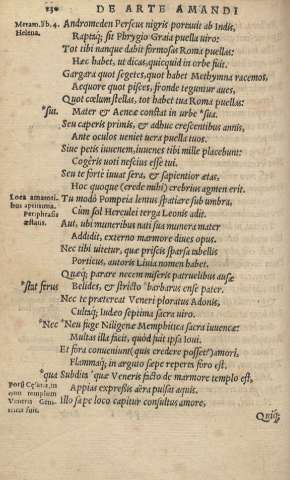 230 DE ARTE AMANDI
Metam. lib. 4. Andromeden Perseus nigris portauit ab Indis,
Helena. Raptaq; sit Phrygio Graia puella uiro:
Tot tibi nanque dabit formosas Roma puellas:
Hæc habet, ut dicas, quicquid in orbe fuit.
Gargara quot segetes, quot habet Methymna racemos,
Aequore quot pisces, fronde teguntur aues,
Quot cœlum stellas, tot habet tua Roma puellas:
*sui. Mater & Aeneæ constat in urbe *sua.
Seu caperis primis, & adhuc crescentibus annis,
Ante oculos ueniet uera puella tuos.
Siue petis iuuenem, iuuenes tibi mille placebunt:
Cogêris uoti nescius esse tui.
Seu te forte iuuat sera, & sapientior ætas:
Hoc quoque (crede mihi) crebrius agmen erit.
Loca amantibus aptissima. Tu modò Pompeia lentus spatiare sub umbra,
Periphrasis Cùm sol Herculei terga Leonis adit.
æstatis. Aut, ubi muneribus nati sua munera mater
Addidit, externo marmore diues opus.
Nec tibi uitetur, quæ priscis sparsa tabellis
Porticus, autoris Liuia nomen habet.
Quæq; parare necem miseris patruelibus ausæ
*stat ferus Belides, & stricto *barbarus ense pater.
Nec te prætereat Veneri ploratus Adonis,
Cultaq; Iudæo septima sacra uiro.
*Nec *Neu fuge Niligenæ Memphitica sacra iuuencæ:
Multas illa facit, quòd fuit ipsa Ioui.
Et fora conueniunt (quis credere posset?) amori,
Flammaq; in arguto sæpe reperta foro est.
*qua Subdita *quæ Veneris facto de marmore templo est,
Appias expressis aëra pulsat aquis.
Illo sæpe loco capitur consultus amore,
Quiq;